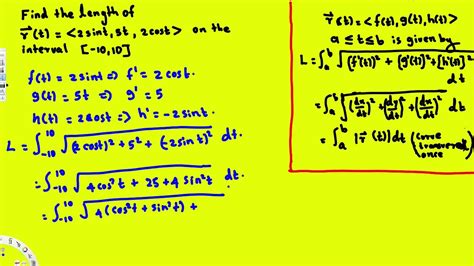 Find the length of
r⃗(t) = <2sint, 5t, 2cost> on the
interval [-10,10]
f(t) = 2sint ⇒ f' = 2cost.
g(t) = 5t ⇒ g' = 5
h(t) = 2cost ⇒ h' = -2sint.
L = ∫₋₁₀¹⁰ √((2cost)² + 5² + (-2sint)²) dt.
= ∫₋₁₀¹⁰ √(4cos²t + 25 + 4sin²t) dt.
= ∫₋₁₀¹⁰ √(4(cos²t + sin²t) +
r⃗(t) = <f(t), g(t), h(t)>
a ≤ t ≤ b is given by
L = ∫ₐᵇ √((f'(t))² + [g'(t)]² + [h'(t)]²) dt
= ∫ₐᵇ √((dx/dt)² + (dy/dt)² + (dz/dt)²) dt
= ∫ₐᵇ |r⃗'(t)| dt (curve
once